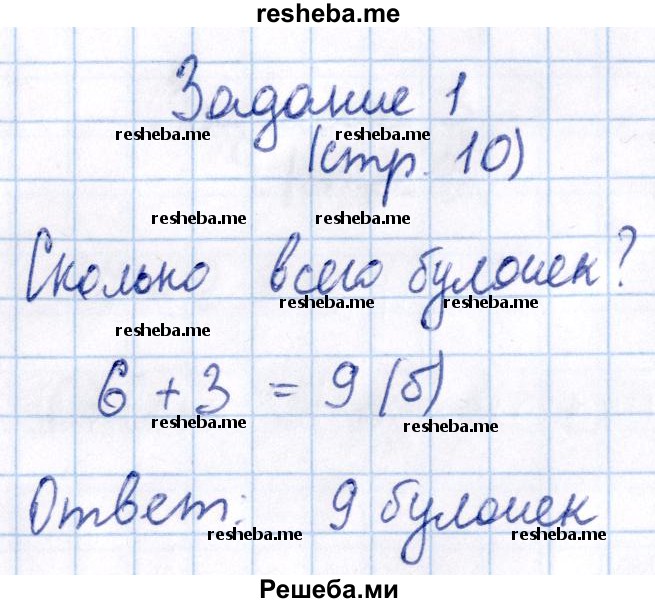 resheba.me
Задание 1
resheba.me resheba.me
(стр. 10)
resheba.me resheba.me
Сколько всего булочек?
resheba.me resheba.me
resheba.me
6 + 3 = 9 (б)
resheba.me resheba.me
Ответ: 9 булочек
resheba.me resheba.me
Решеба.ми